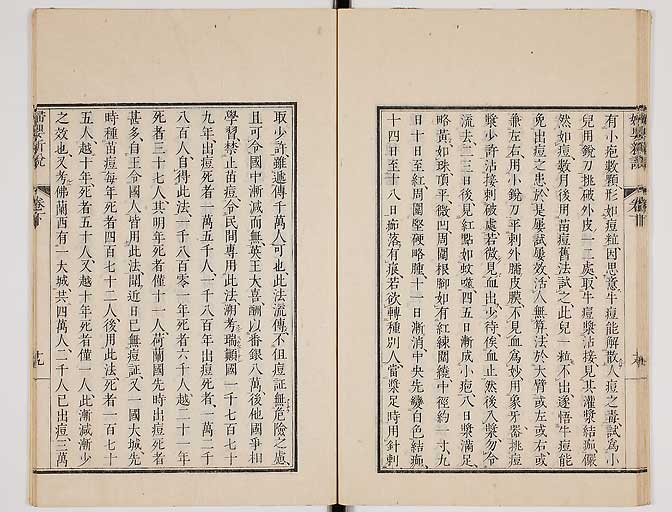 有小疱數顆形如痘粒因思意牛痘能解散人痘之毒試爲小
兒用銳刀挑破外皮一二處取牛痘漿沾接見其灌漿結痂儼
然如痘數月後用苗痘舊法試之此兒一粒不出遂悟牛痘能
免出痘之患於是屢試屢效活人無算法於大臂或左或右或
兼左右用小銳刀平刺外膚皮膜不見血爲妙用象牙器挑痘
漿少許沾接刺破處若微見血出少待俟血止然後入漿勿令
流去二三日後見紅點如蚊噬四五日漸成小疱八日漿滿足
略黃如珠頂平微凹周圍根脚如有紅線圍繞中徑約二寸九
日十日至紅周圍堅硬略腫十一日漸消中央先變白色結痂
十四日至十八日痂落有痕若欲轉種別人當漿足時用針刺
取少許雖遞傳千萬人可也此法流傳不但痘証無危險之慮
且可令國中漸減而無英王大喜酬以番銀八萬後他國爭相
學習禁止苗痘令民間專用此法溯考瑞顚國一千七百七十
九年出痘死者一萬五千人一千八百年出痘死者一萬二千
八百人自得此法一千八百零一年死者六千人越二十一年
死者三十七人其明年死者僅十一人荷蘭國先時出痘死者
甚多自王令國人皆用此法聞近日已無痘証又一國大城先
時種苗痘每年死者四百七十二人後用此法死者一百七十
五人越十年死者五十八人又越十年死者僅一人此漸減漸少
之效也又考佛蘭西有一大城共四萬人二千人已出痘三萬
婦嬰新說
卷下
九